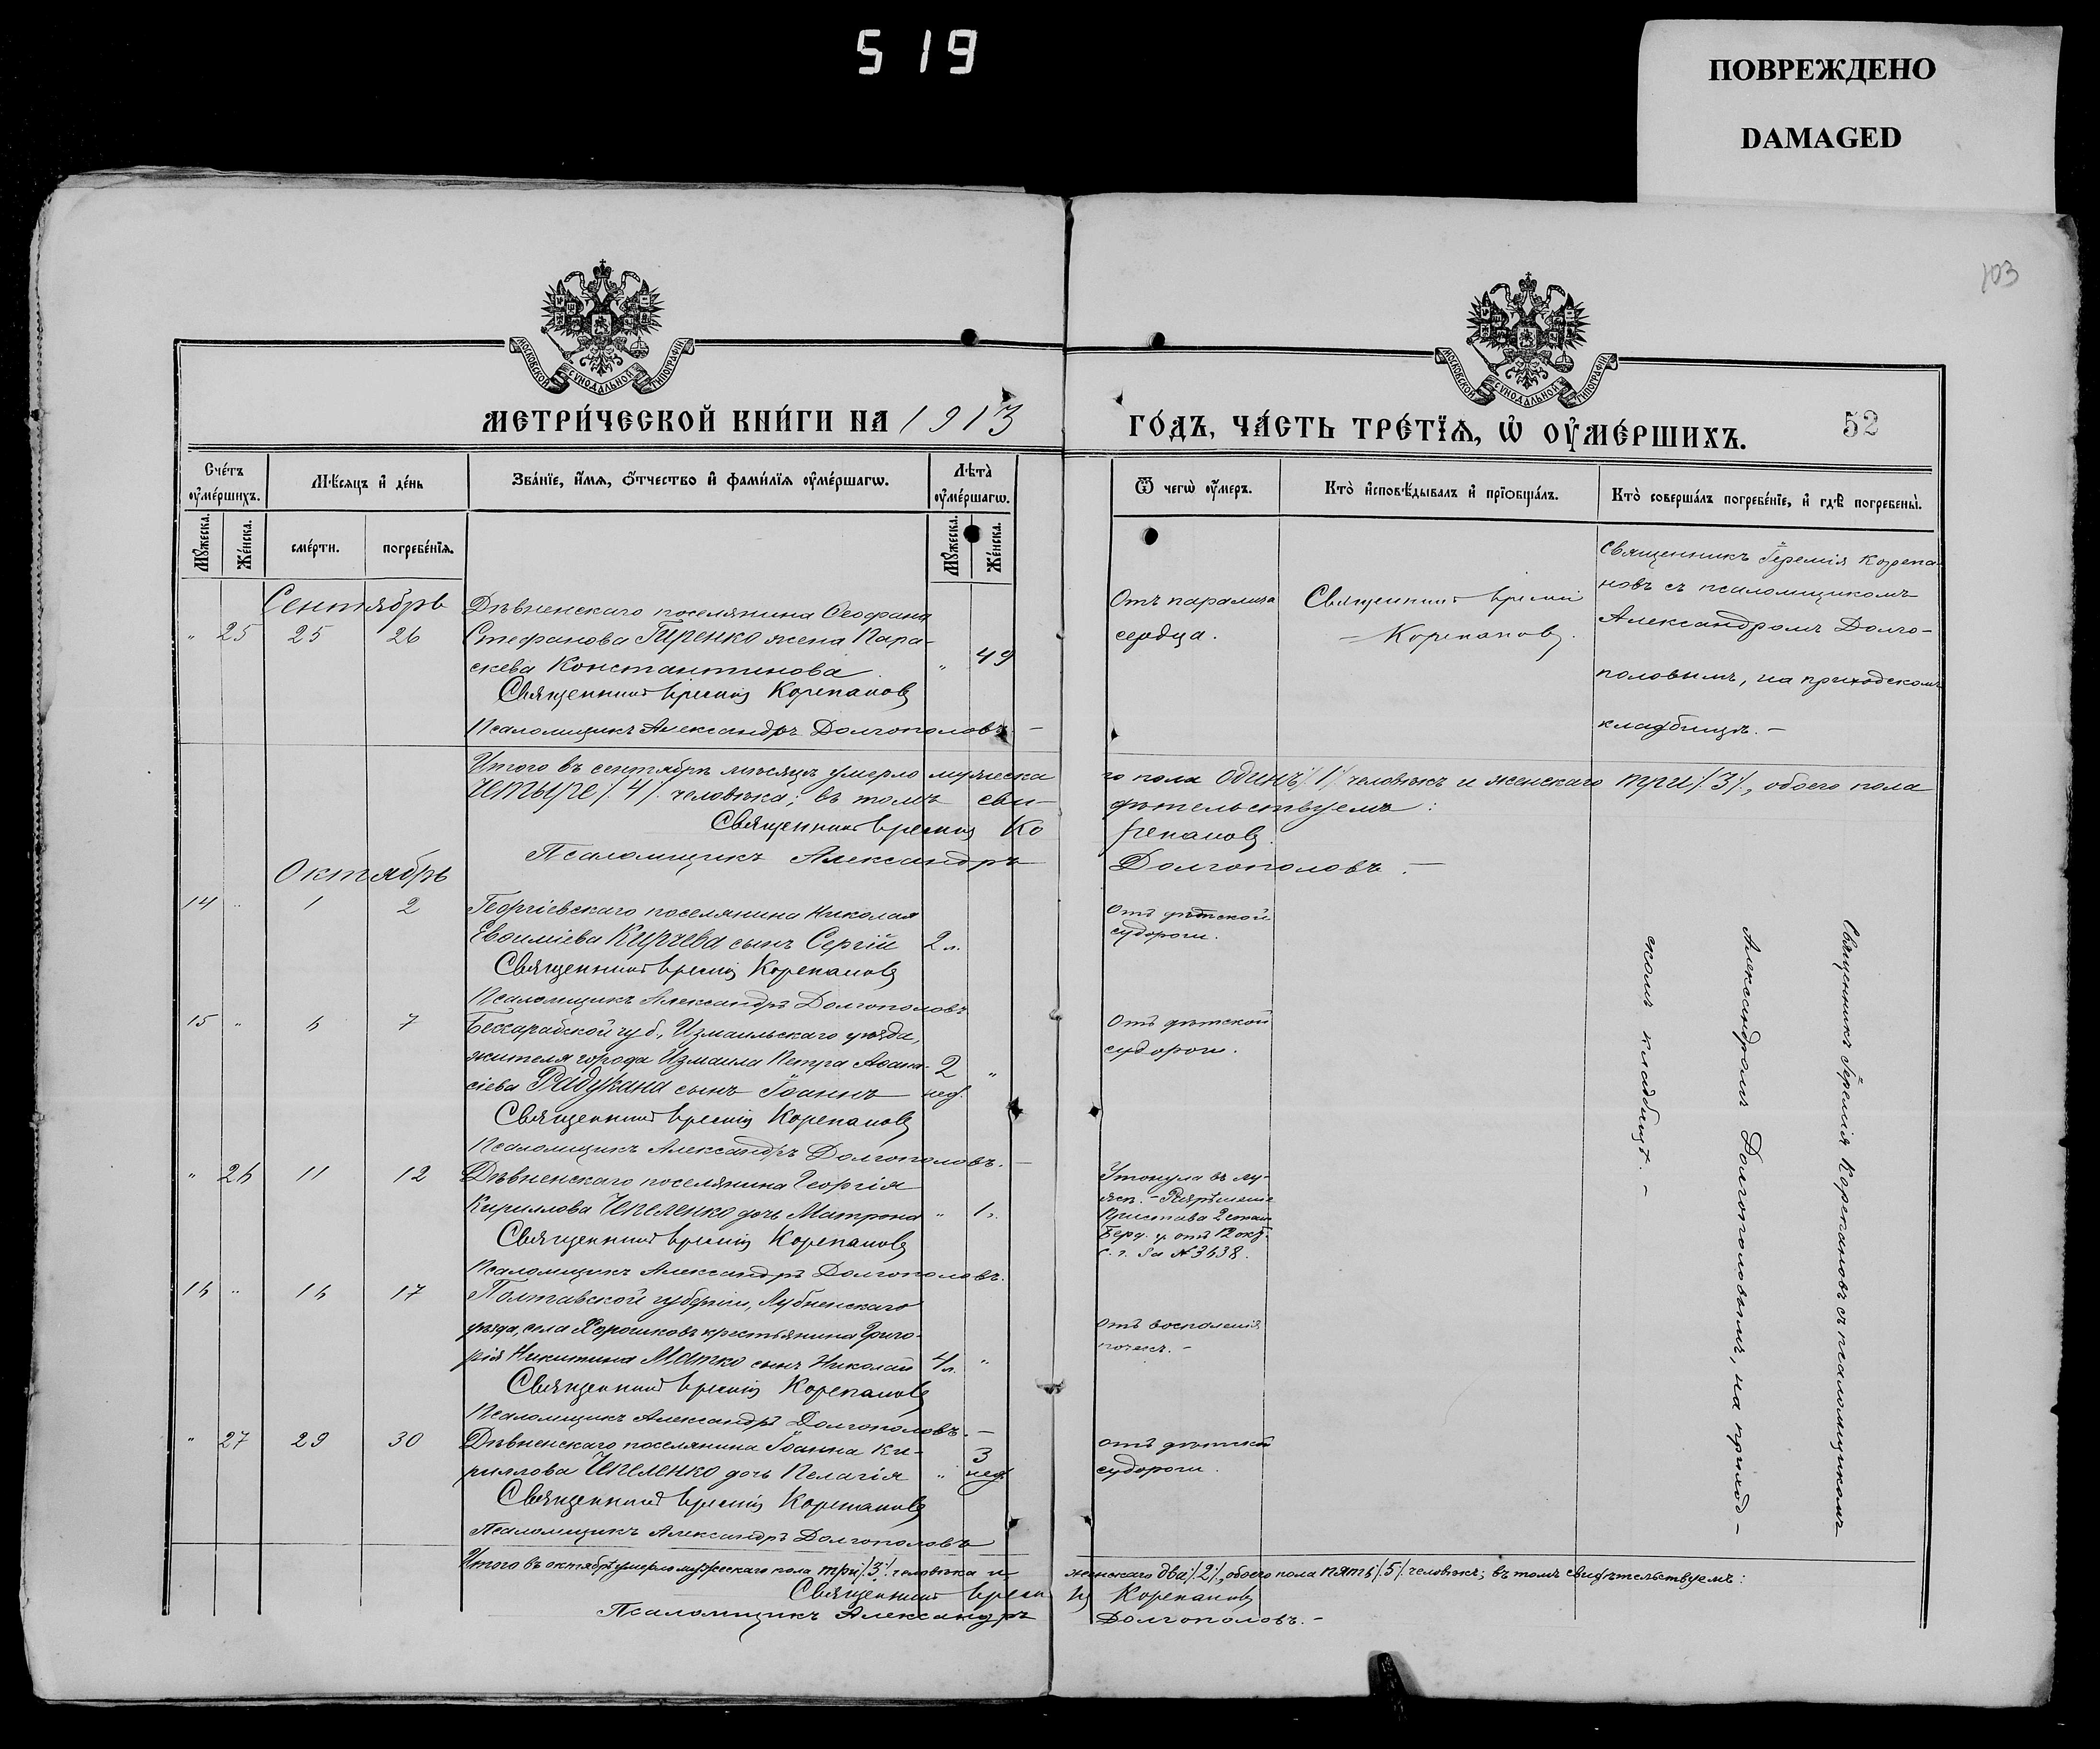 519
ПОВРЕЖДЕНО
DAMAGED
103
МОСКОВСКОЙ СѴНОДАЛЬНОЙ ТИПОГРАФІИ
МОСКОВСКОЙ СѴНОДАЛЬНОЙ ТИПОГРАФІИ
МЕТРИ́ЧЕСКОЙ КНИ́ГИ НА 1913
ГО́ДЪ, ЧА́СТЬ ТРЕ́ТЇѦ, Ѡ҆ ОУ҆МЕ́РШИХЪ.
52
Сче́тъ оу҆ме́ршихъ.
Мꙋ́жеска.
Же́нска.
Мѣ́сяцъ и҆ де́нь
сме́рти.
погребе́нїѧ.
Зва́нїе, и҆́мѧ, ѻ҆́тчество и҆ фами́лїѧ оу҆ме́ршагѡ.
Лѣ́та̀ оу҆ме́ршагѡ.
Мꙋ́жеска.
Же́нска.
Ѿ чегѡ̀ оу҆́меръ.
Кто̀ и҆сповѣ́дывалъ и҆ прїѻбща́лъ.
Кто̀ соверша́лъ погребе́нїе, и҆ гдѣ̀ погребены̀.
Сентябрь
" 25 25 26
Дѣвненскаго поселянина Ѳеофана
Стефанова Гиренко жена Пара-
скева Константинова " 49
Священникъ Іеремія Корепановъ
Псаломщикъ Александръ Долгополовъ. —
Отъ паралича
сердца.
Священникъ Іеремія
Корепановъ.
Священникъ Іеремія Корепа-
новъ съ псаломщикомъ
Александромъ Долго-
половымъ, на приходскомъ
кладбищѣ. —
Итого въ сентябрѣ мѣсяцѣ умерло мужеска го пола одинъ /1/ человѣкъ и женскаго три /3/, обоего пола
четыре /4/ человѣка; въ томъ сви- дѣтельствуемъ:
Священникъ Іеремія Ко репановъ.
Псаломщикъ Александръ Долгополовъ. —
Октябрь
14 " 1 2
Георгіевскаго поселянина Николая
Евѳиміева Кирчева сынъ Сергій 2 л.
Священникъ Іеремія Корепановъ
Псаломщикъ Александръ Долгополовъ
Отъ дѣтской
судороги.
15 " 6 7
Бессарабской губ., Измаильскаго уѣзда,
жителя города Измаила Петра Аѳана- 2 "
сіева Радукана сынъ Іоаннъ нед.
Священникъ Іеремія Корепановъ
Псаломщикъ Александръ Долгополовъ. —
Отъ дѣтской
судороги.
" 26 11 12
Дѣвненскаго поселянина Георгія
Кириллова Чепеленко дочь Матрона " 1 г.
Священникъ Іеремія Корепановъ
Псаломщикъ Александръ Долгополовъ.
Утонула въ лу-
жѣ. — Разрѣшеніе
Пристава 2 стана
Берд. у. отъ 12 окт.
с. г. за №3638.
16 " 16 17
Полтавской губерніи, Лубненскаго
уѣзда, села Хорошковъ крестьянина Григо-
рія Никитина Матко сынъ Николай 4 л. "
Священникъ Іеремія Корепановъ
Псаломщикъ Александръ Долгополовъ. —
Отъ воспаленія
почекъ. —
" 27 29 30
Дѣвненскаго поселянина Іоанна Ки- 3
риллова Чепеленко дочь Пелагія " нед.
Священникъ Іеремія Корепановъ
Псаломщикъ Александръ Долгополовъ
Отъ дѣтской
судороги.
Священникъ Іеремія Корепановъ съ псаломщикомъ
Александромъ Долгополовымъ, на приход-
скомъ кладбищѣ. —
Итого въ октябрѣ умерло мужескаго пола три /3/ человѣка и женскаго два /2/, обоего пола пять /5/ человѣкъ; въ томъ свидѣтельствуемъ:
Священникъ Іеремія Корепановъ
Псаломщикъ Александръ Долгополовъ. —